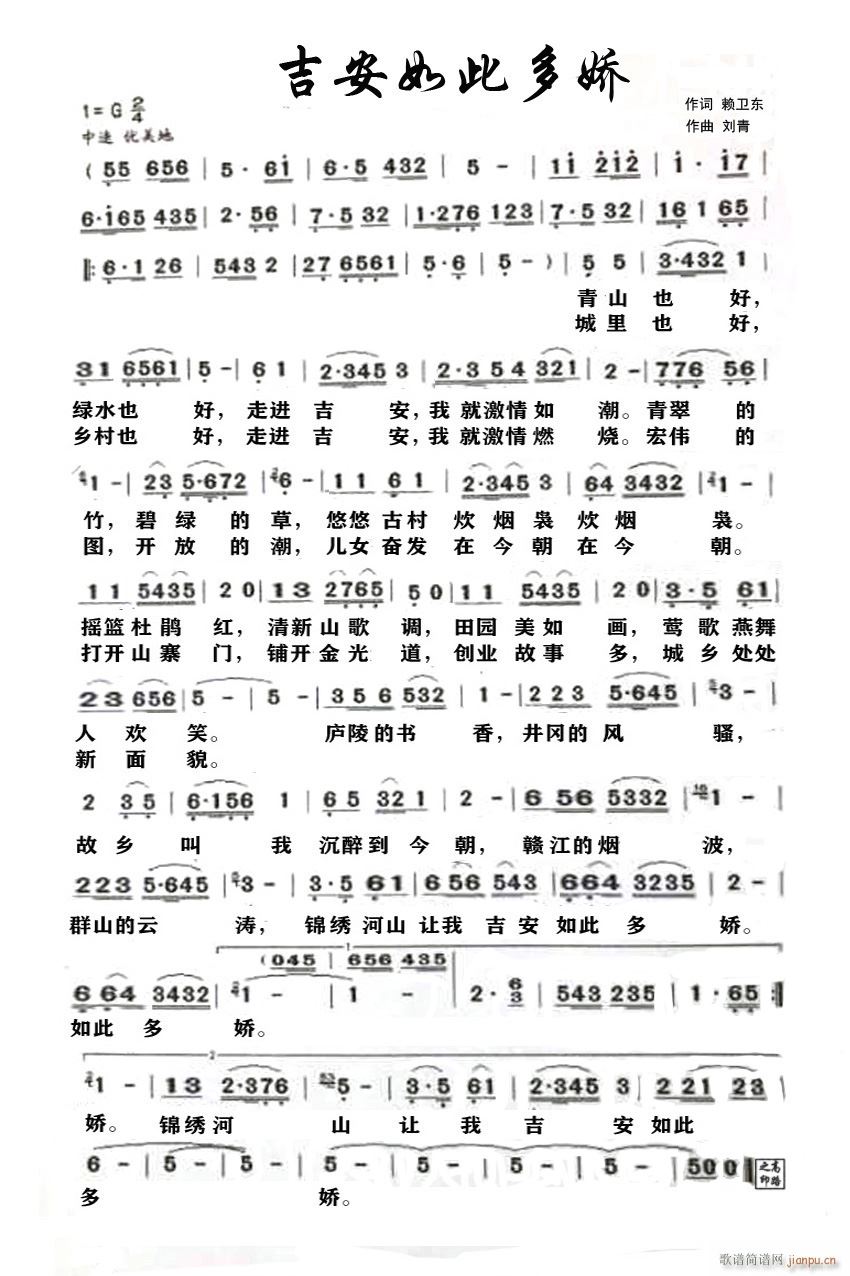 吉安如此多娇
作词 赖卫东
作曲 刘青
1=G 2/4
中速 优美地
(55 656 | 5· 6i | 6·5 432 | 5 - | 1i 2i2 | i· i7
6·i65 435 | 2·56 | 7·5 32 | 1·276 123 | 7·5 32 | 16 1 65 |
‖: 6·1 26 | 543 2 | 27 6561 | 5·6 | 5 - ) | 5 5 | 3·432 1 |
青山也好，
城里也好，
31 6561 | 5 - | 6 1 | 2·345 3 | 2·3 5 4 321 | 2 - | 776 56 |
绿水也 好，走进 吉 安，我 就激情如 潮。青翠 的
乡村也 好，走进 吉 安，我 就激情燃 烧。宏伟 的
1 - | 23 5·672 | 6· | 11 61 | 2·345 3 | 64 3432 | 1 - |
竹，碧绿 的草，悠悠古村 炊烟袅 炊烟 袅。
图，开放 的潮，儿女奋发 在今朝 在今 朝。
11 5435 | 2 0 | 13 2765 | 5 0 | 11 5435 | 2 0 | 3·5 61 |
摇篮杜鹃 红，清新山歌 调，田园美如 画，莺歌燕舞
打开山寨 门，铺开金光 道，创业故事 多，城乡处处
23 656 | 5 - | 5 - | 3 5 6 532 | 1 - | 2 2 3 5·645 | 3 - |
人欢 笑。 庐陵的书 香，井冈的风 骚，
新面 貌。
2 35 | 6·156 1 | 65 321 | 2 - | 6 56 5332 | 1 - |
故乡 叫 我 沉醉到今 朝， 赣江的烟 波，
223 5·645 | 3 - | 3·5 61 | 656 543 | 664 3235 | 2 - |
群山的云 涛， 锦绣河山 让我 吉安 如此 多 娇。
1
(045 | 656 435
664 3432 | 1 - | 1 - | 2· 6/3 | 543 235 | 1·65 :‖
如此 多 娇。
2
1 - | 13 2·376 | 5 - | 3·5 61 | 2·345 3 | 2 21 23 |
娇。 锦绣河 山 让 我 吉 安 如此
6 - | 5 - | 5 - | 5 - | 5 - | 5 - | 500 0 ‖
多 娇。
歌谱简谱网 jianpu.cn